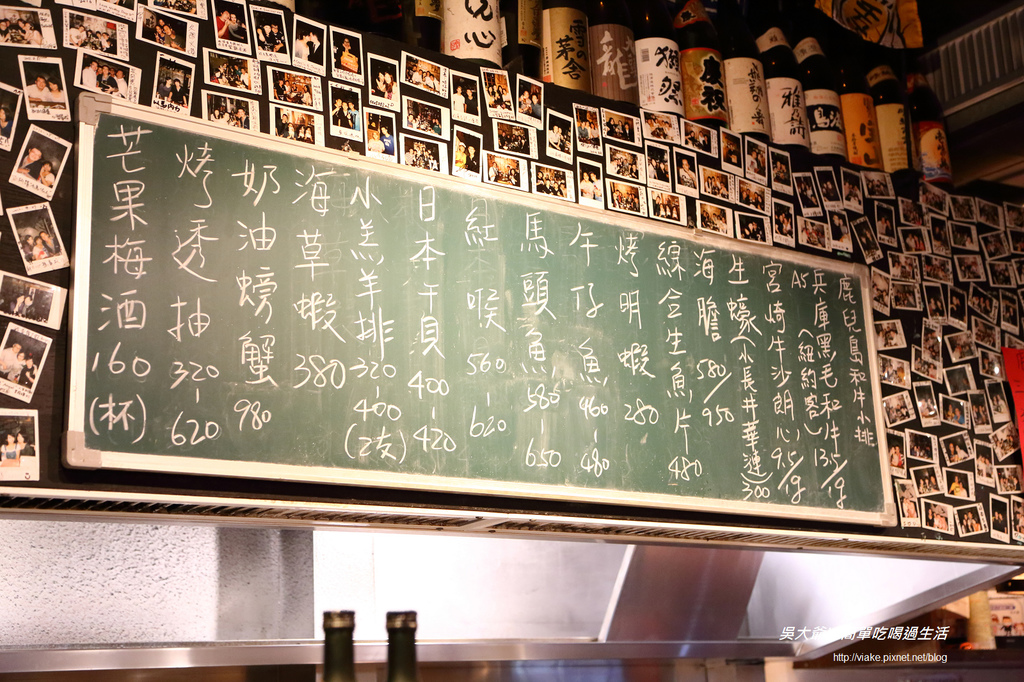 鹿兒島和牛小排
A5 兵庫黑毛和牛 13.5/1g
(紐約客)
宮崎牛沙朗心 9.5/1g
生蠔(小長井華蓮)300
海膽 580/950
綜合生魚片 480
烤明蝦 280
午仔魚 460-480
馬頭魚 580-650
紅喉 560-620
日本干貝 400-420
小羔羊排 320-400(2支)
海草蝦 380
奶油螃蟹 980
烤透抽 320-620
芒果梅酒 160(杯)
吳大爺 簡單吃喝過生活
http://viake.pixnet.net/blog